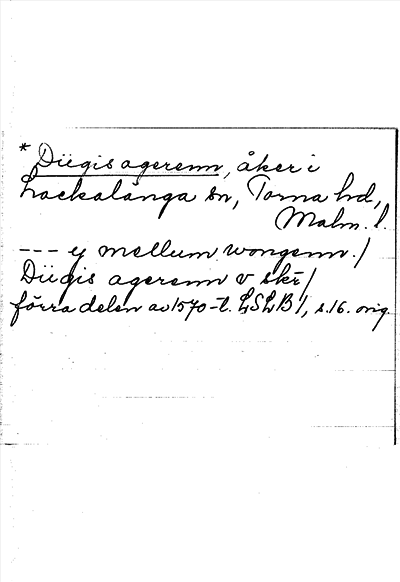 * Diigis agerenn, åker i
Lackalänga sn, Torna hd,
Malm. l.
--- y mellum wongenn. /
Diigis agerenn v skr̄ /
förra delen av 1570-t. LSLB 1, s. 16. orig.